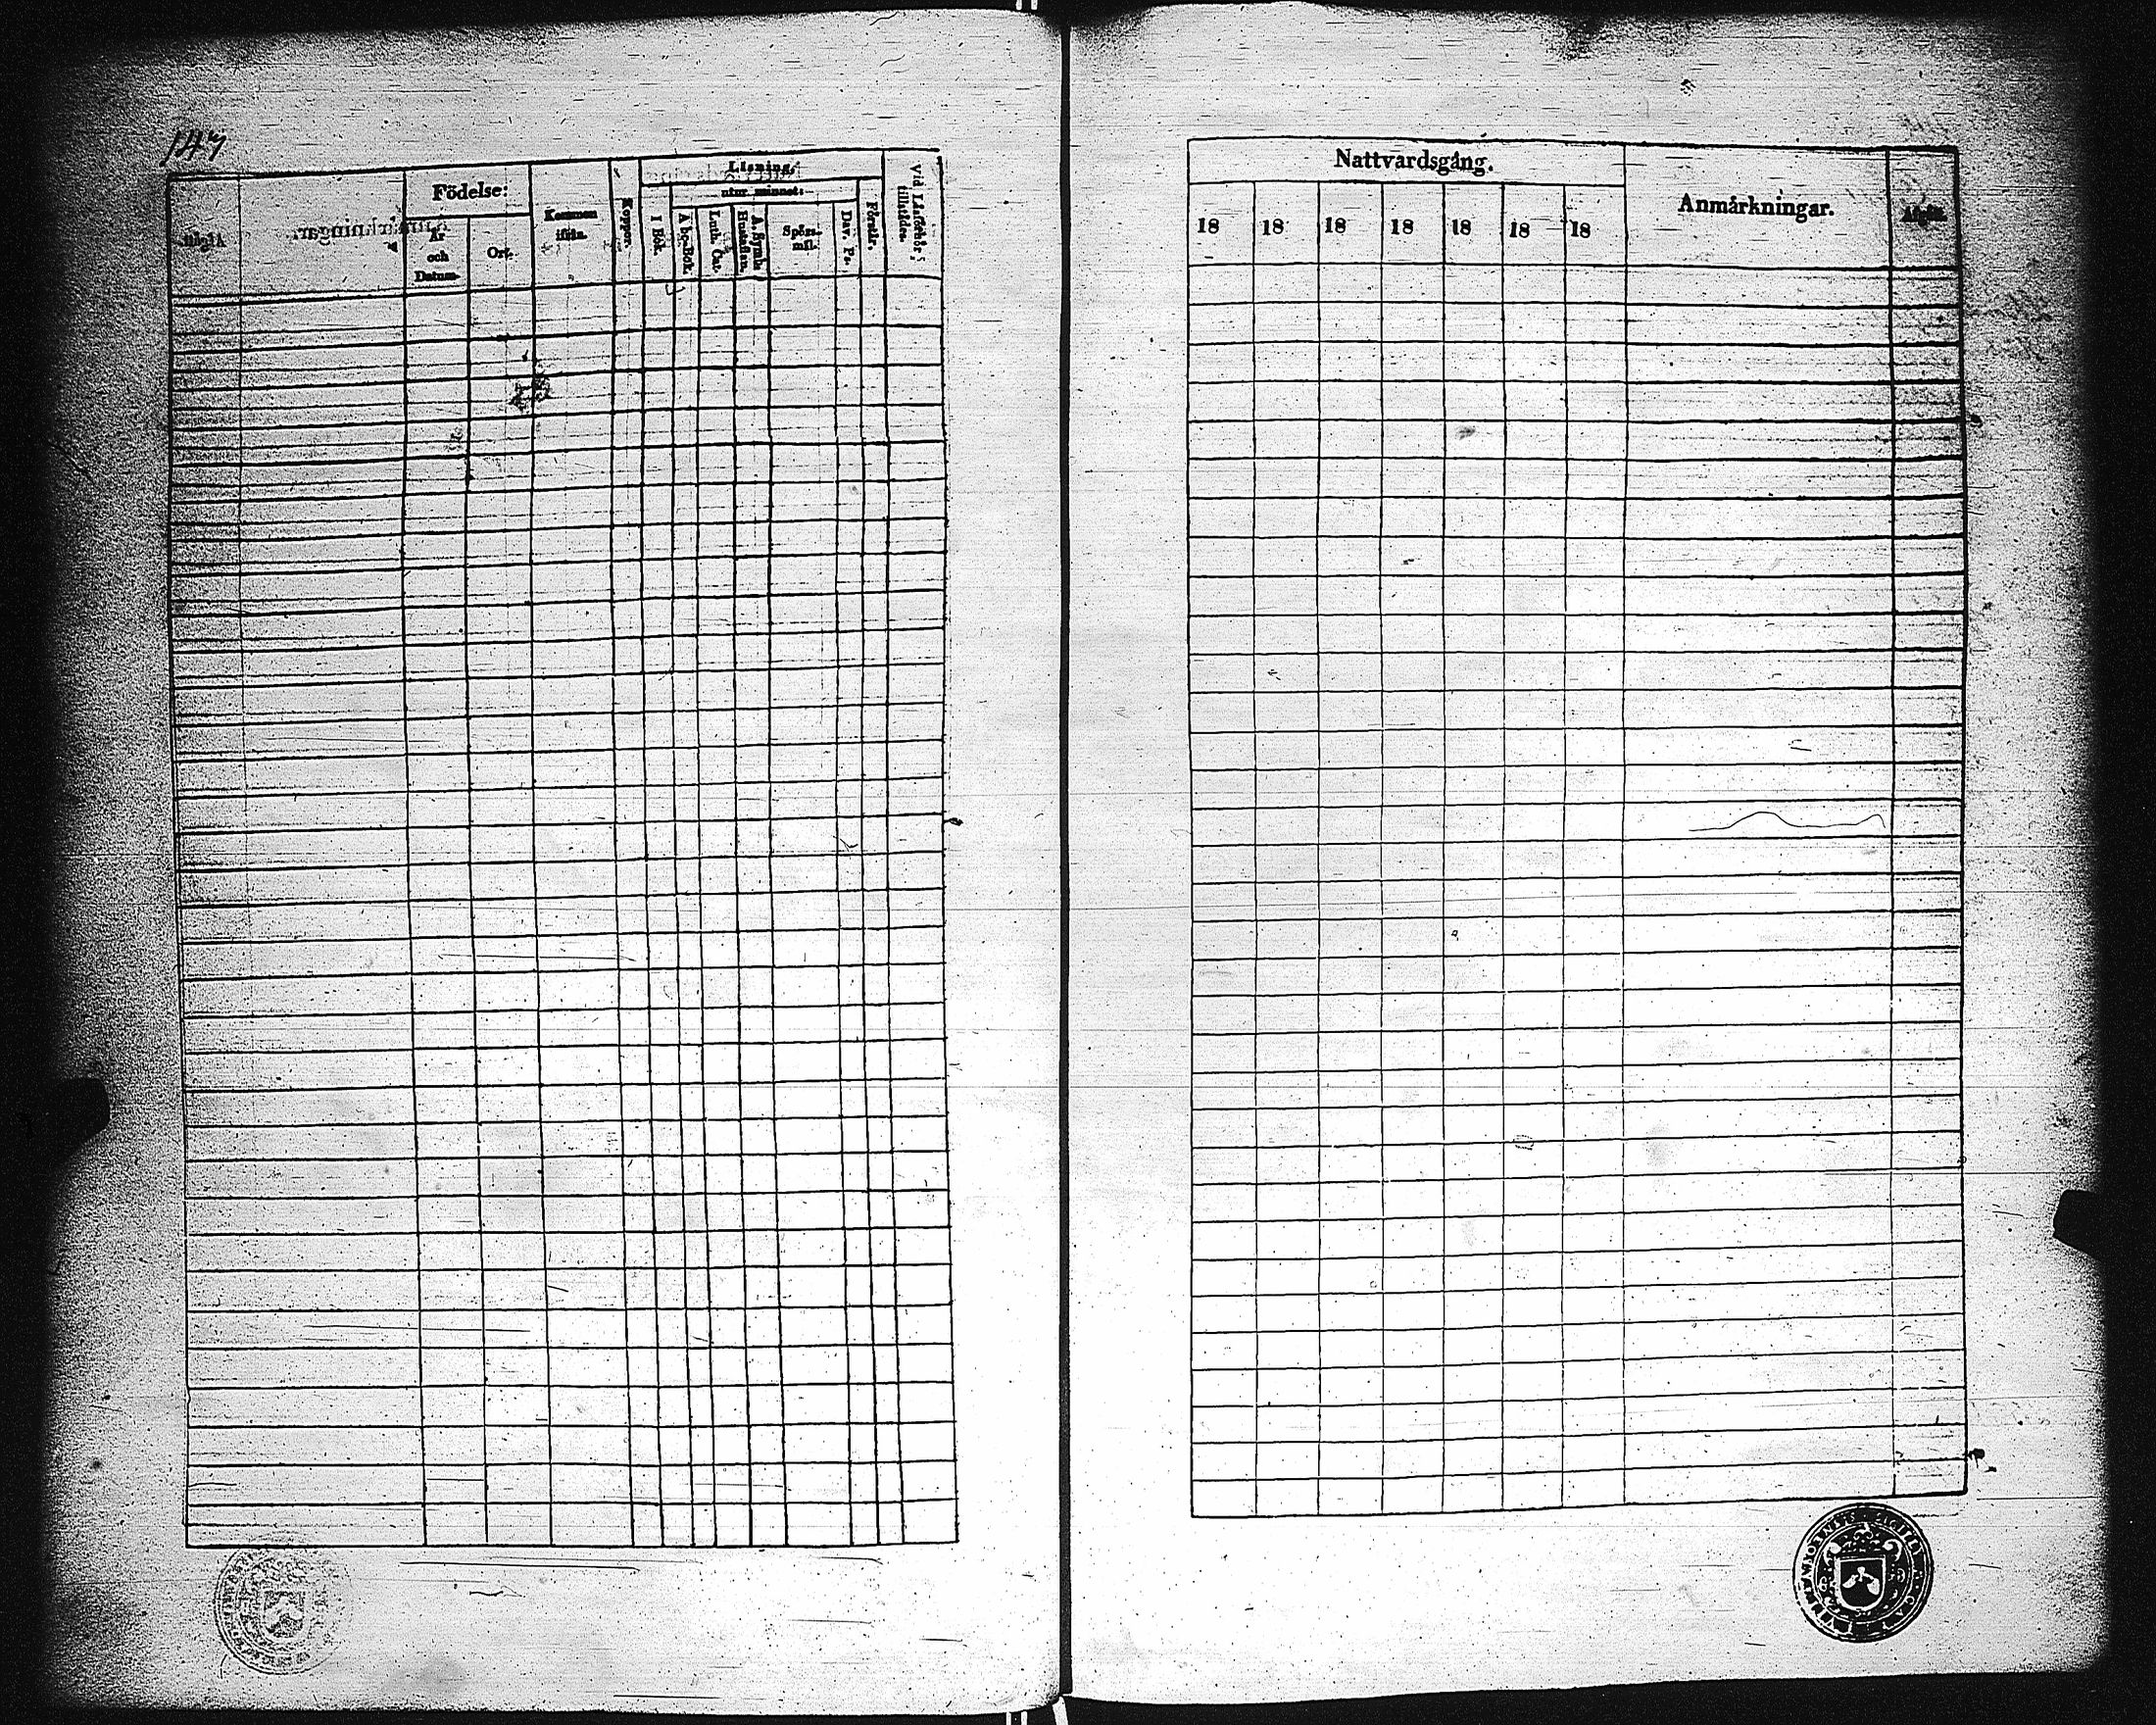 147
Födelse:
År
och
Datum.
Ort.
Kommen
ifrån.
Koppor.
Läsning,
utur minnet:
I Bok.
A b c-Bok.
Luth. Cat.
A. Symb.
Hustaflan.
Spörs-
mål.
Dav. Ps.
Förstår.
Vid Läsförhör
tillstädes.
Nattvardsgång.
18 18 18 18 18 18 18
Anmärkningar.
Afgått.